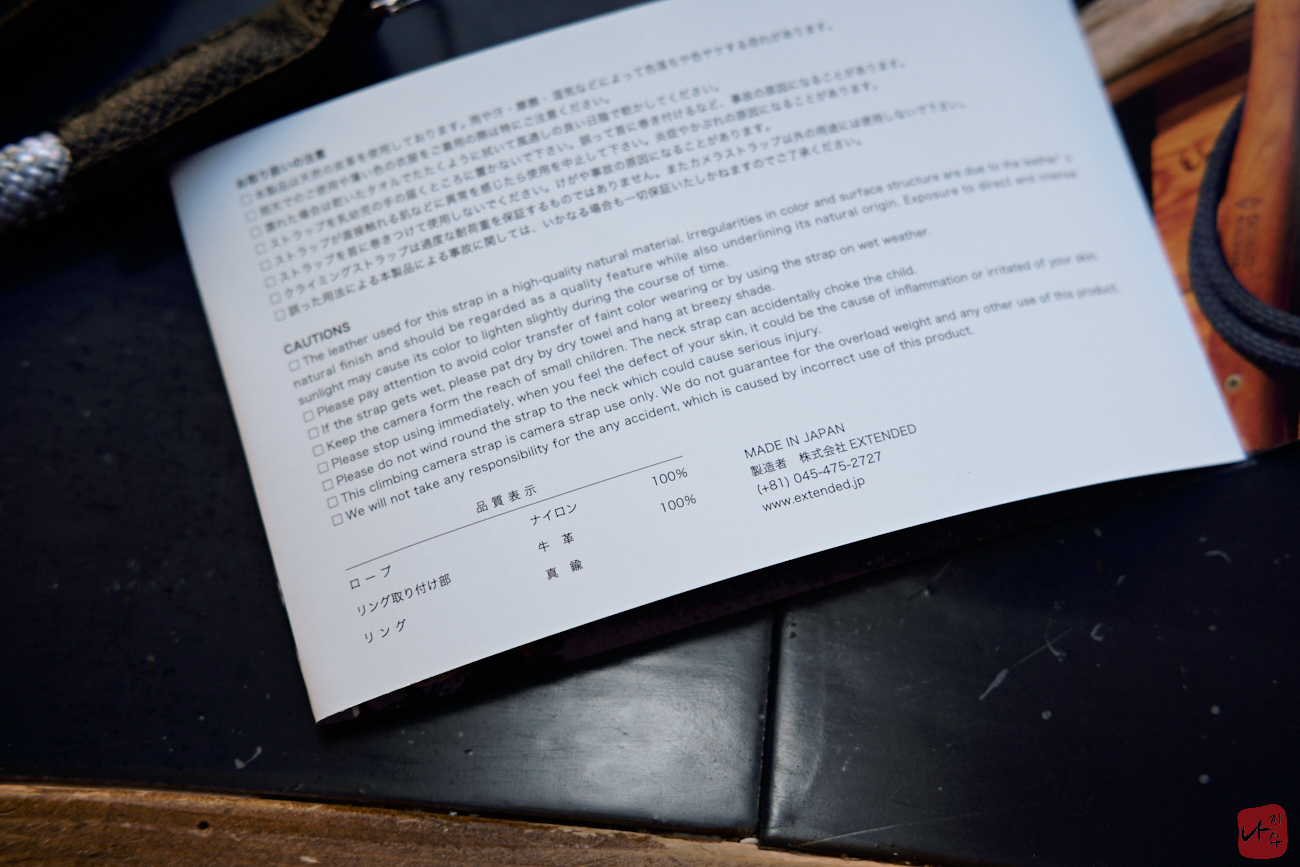 お取り扱いの注意
□ 本製品は天然の皮革を使用しております。雨や汗・摩擦・湿気などによって色落ちや色ヤケする恐れがあります。
□ 雨天でのご使用や薄い色の衣服をご着用の際は特にご注意ください。
□ 濡れた場合は乾いたタオルでたたくように拭いて風通しの良い日陰で乾かしてください。
□ ストラップを乳幼児の手の届くところに置かないで下さい。誤って首に巻き付けるなど、事故の原因になることがあります。
□ ストラップが直接触れる肌などに異常を感じたら使用を中止して下さい。炎症やかぶれの原因になることがあります。
□ ストラップを首に巻きつけて使用しないでください。けがや事故の原因になることがあります。
□ クライミングストラップは過度な耐荷重を保証するものではありません。またカメラストラップ以外の用途には使用しないで下さい。
□ 誤った用法による本製品による事故に関しては、いかなる場合も一切保証いたしかねますのでご了承ください。
CAUTIONS
□ The leather used for this strap in a high-quality natural material. Irregularities in color and surface structure are due to the leather's
natural finish and should be regarded as a quality feature while also underlining its natural origin. Exposure to direct and intense
sunlight may cause its color to lighten slightly during the course of time.
□ Please pay attention to avoid color transfer of faint color wearing or by using the strap on wet weather.
□ If the strap gets wet, please pat dry by dry towel and hang at breezy shade.
□ Keep the camera form the reach of small children. The neck strap can accidentally choke the child.
□ Please stop using immediately, when you feel the defect of your skin, it could be the cause of inflammation or irritated of your skin.
□ Please do not wind round the strap to the neck which could cause serious injury.
□ This climbing camera strap is camera strap use only. We do not guarantee for the overload weight and any other use of this product.
□ We will not take any responsibility for the any accident, which is caused by incorrect use of this product.
品質表示
ロープ ナイロン 100%
リング取り付け部 牛 革 100%
リング 真 鍮
MADE IN JAPAN
製造者 株式会社 EXTENDED
(+81) 045-475-2727
www.extended.jp
나지수